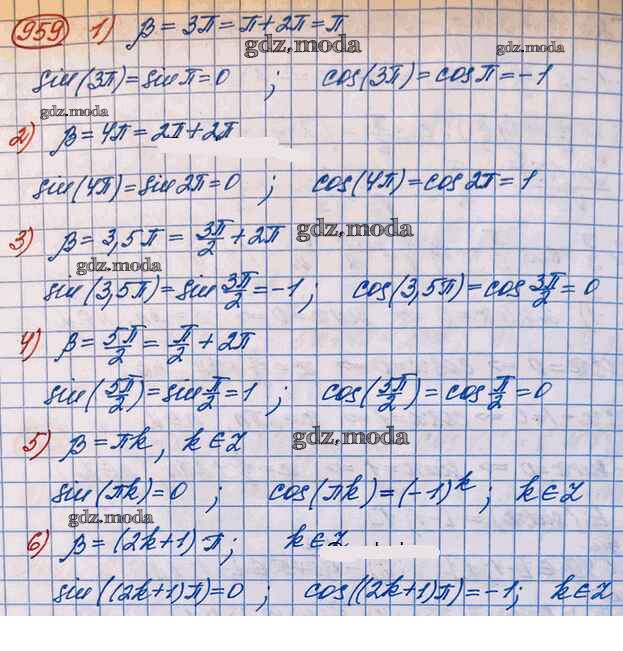 959 1) β = 3π = π + 2π = π
gdz.moda
gdz.moda
sin(3π) = sin π = 0 ; cos(3π) = cos π = -1
gdz.moda
2) β = 4π = 2π + 2π
sin(4π) = sin 2π = 0 ; cos(4π) = cos 2π = 1
gdz.moda
3) β = 3,5π = 3π/2 + 2π
gdz.moda
sin(3,5π) = sin 3π/2 = -1 ; cos(3,5π) = cos 3π/2 = 0
4) β = 5π/2 = π/2 + 2π
sin(5π/2) = sin π/2 = 1 ; cos(5π/2) = cos π/2 = 0
gdz.moda
5) β = πk, k ∈ Z
sin(πk) = 0 ; cos(πk) = (-1)^k ; k ∈ Z
gdz.moda
6) β = (2k+1)π ; k ∈ Z
sin((2k+1)π) = 0 ; cos((2k+1)π) = -1 ; k ∈ Z